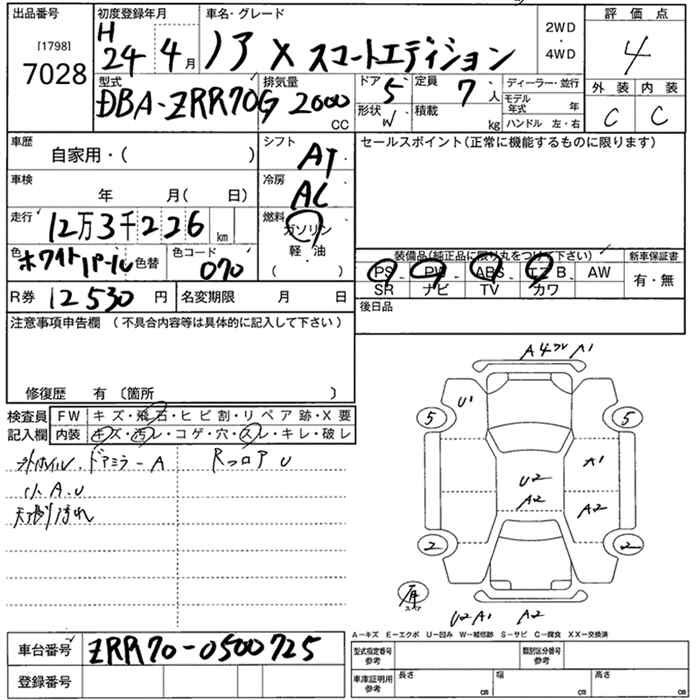 出品番号
[1798]
7028
初度登録年月
H
24年 4月
車名・グレード
ノア X スコートエディション
2WD
・
4WD
評価点
4
外装 内装
C C
型式
DBA-ZRR70G
排気量
2000
CC
ドア
5
形状
W
定員
7人
積載
kg
ディーラー・並行
モデル年式 年
ハンドル 左・右
車歴
自家用・( )
車検
年 月( 日)
走行
12万3千226 km
色
ホワイトパール 色替
色コード
070
シフト
AT
冷房
AC
燃料
ガソリン
軽・油
( )
R券 12530円
名変期限 月 日
セールスポイント(正常に機能するものに限ります)
装備品(純正品に限り丸をつけて下さい)
新車保証書
PS PW ABS エアB AW
SR ナビ TV カワ
有・無
後日品
注意事項申告欄(不具合内容等は具体的に記入して下さい)
修復歴 有 〔箇所 〕
検査員
記入欄
FW キズ・飛石・ヒビ割・リペア跡・X要
内装 キズ・汚レ・コゲ・穴・スレ・キレ・破レ
ドアミラーA
RフロアU
小A.U
A1
U1
5
5
A1
U2
A2
A2
2
2
U2 A1 A2
A-キズ E-エクボ U-凹み W-補修跡 S-サビ C-腐食 XX-交換済
車台番号
ZRR70-0500725
登録番号
型式指定番号
参考
類別区分番号
参考
車庫証明用
参考
長さ cm
幅 cm
高さ cm